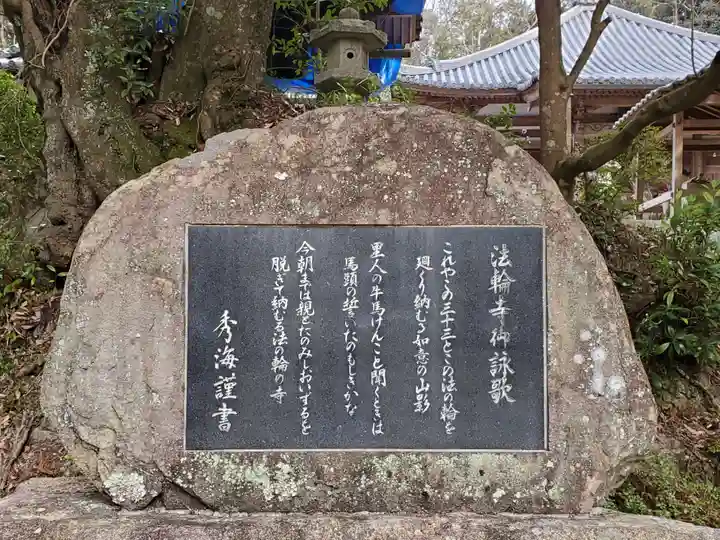 法輪寺御詠歌
これやこの三十三とこの法の輪を
廻くり納むる如意の山影
里人の牛馬けんこと聞くときは
馬頭の誓いたのもしきかな
今朝まては親とたのみしおいずるを
脱ぎて納むる法の輪の寺
秀海謹書